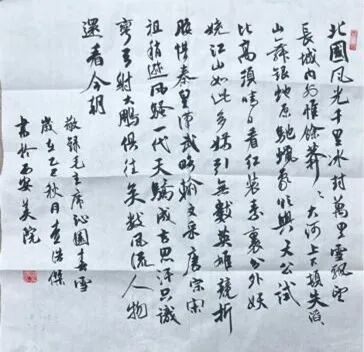 北國風光千里冰封萬里雪飄望
長城內外惟餘莽々大河上下頓失滔々
山舞銀蛇原馳蠟象欲與天公試
比高須晴日看紅裝素裹分外妖
嬈江山如此多嬌引無數英雄競折
腰惜秦皇漢武略輸文采唐宗宋
祖稍遜風騷一代天驕成吉思汗只識
彎弓射大鵰俱往矣數風流人物
還看今朝
敬錄毛主席沁園春雪
歲在乙巳秋月
書於西安美院